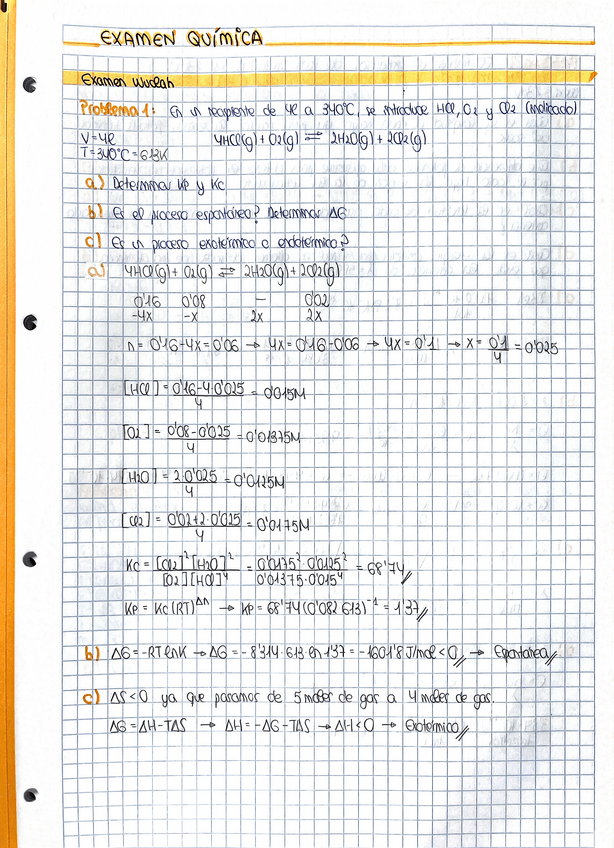 EXAMEN QUÍMICA
Examen Wuolah
Problema 1: En un recipiente de 4l a 340°C, se introduce HCl, O2 y Cl2 (indicado)
V=4l
4HCl(g)+O2(g) ⇌ 2H2O(g)+2Cl2(g)
T=340°C=613K
a) Determinar Kp y Kc
b) Es el proceso espontáneo? Determinar ΔG
c) Es un proceso exotérmico o endotérmico?
a) 4HCl(g)+O2(g) ⇌ 2H2O(g)+2Cl2(g)
0'16 0'08 — 0'02
-4x -x 2x 2x
n=0'16-4x=0'06 → 4x=0'16-0'06 → 4x=0'1 → x=0'1/4=0'025
[HCl]=0'16-4·0'025/4=0'015M
[O2]=0'08-0'025/4=0'01375M
[H2O]=2·0'025/4=0'0125M
[Cl2]=0'02+2·0'025/4=0'0175M
Kc=[Cl2]²[H2O]²/[O2][HCl]⁴=0'0175²·0'0125²/0'01375·0'015⁴=68'74
Kp=Kc(RT)^Δn → Kp=68'74(0'082·613)⁻¹=1'37
b) ΔG=-RTlnK → ΔG=-8'314·613·ln1'37=-1601'8J/mol<0 → Espontánea
c) ΔS<0 ya que pasamos de 5 moles de gas a 4 moles de gas.
ΔG=ΔH-TΔS → ΔH=-ΔG-TΔS → ΔH<0 → Exotérmico